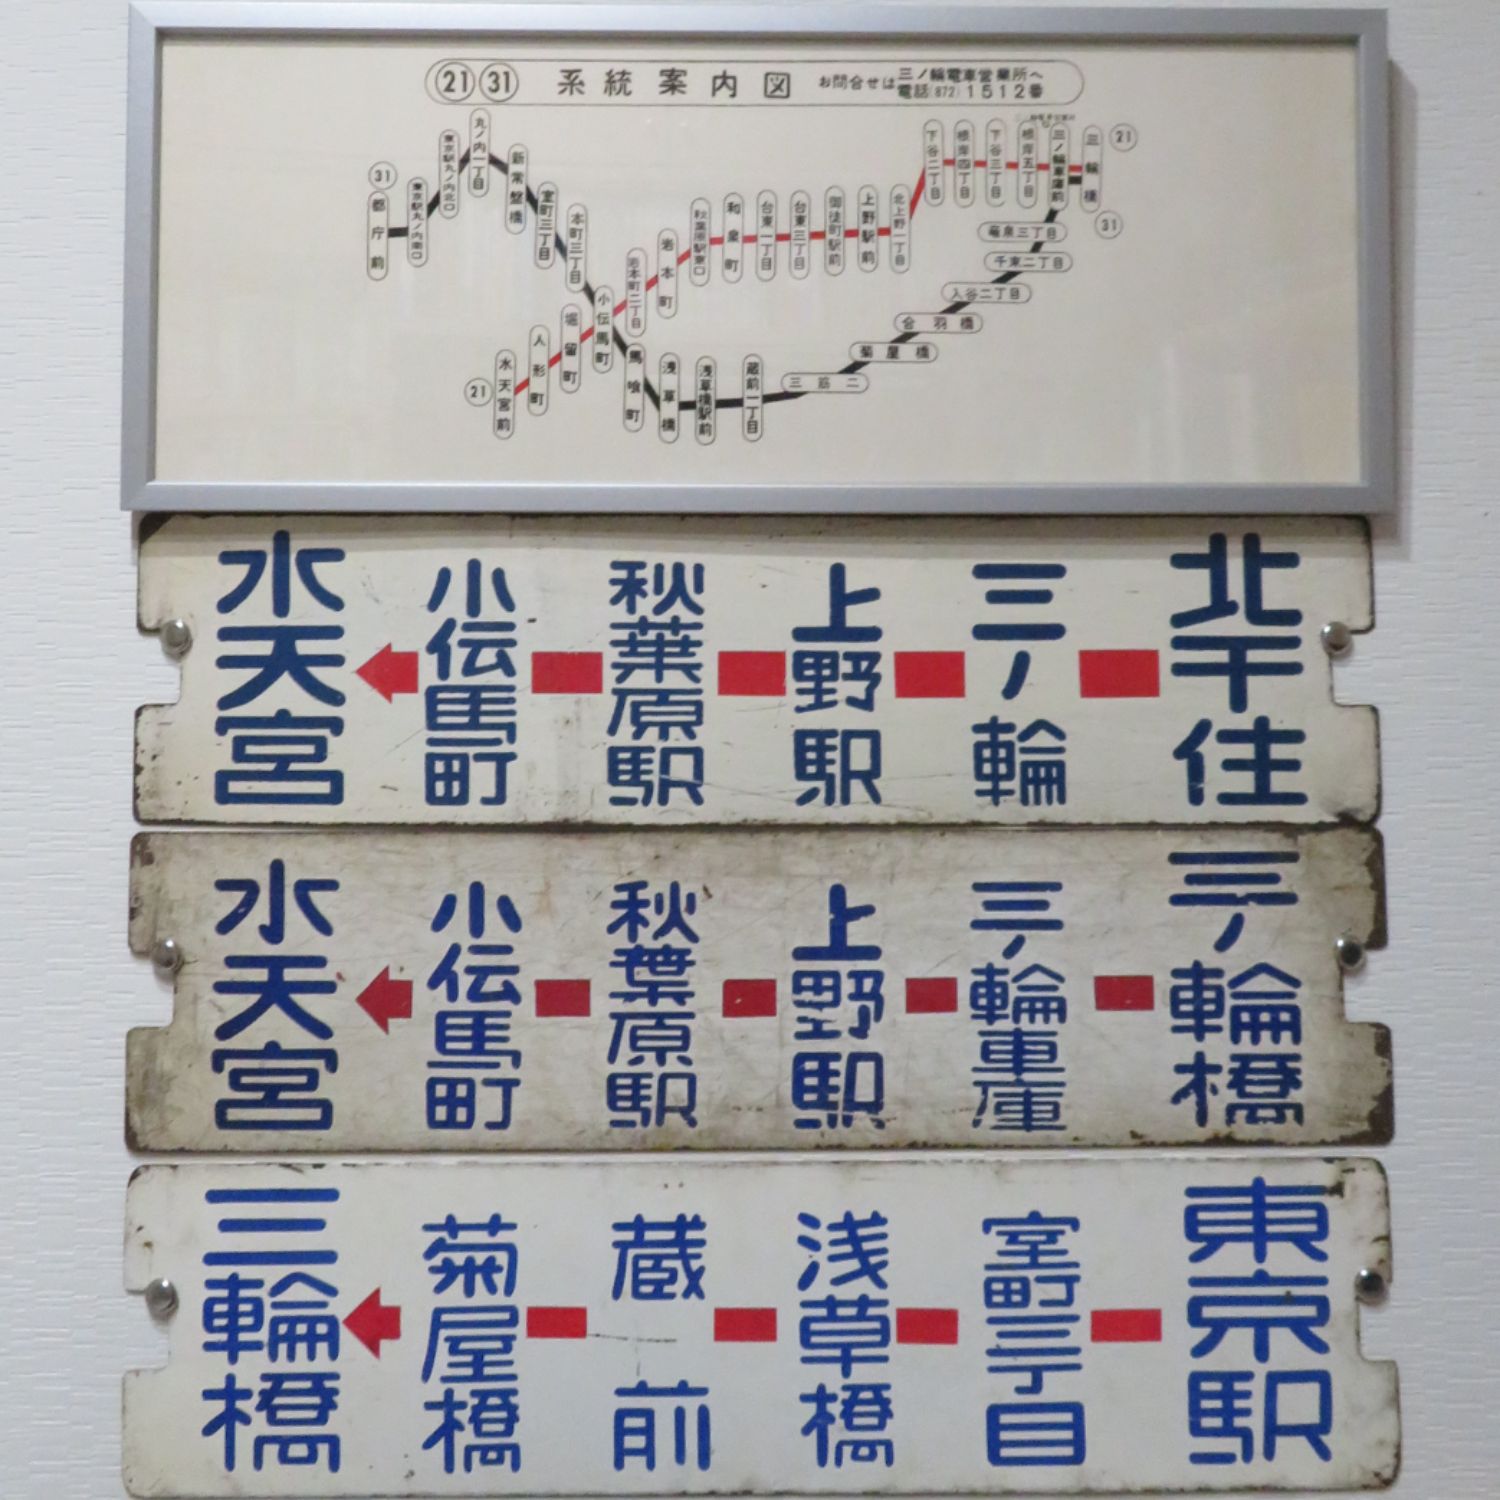 21 31 系統案内図 お問合せは 三ノ輪電車営業所へ 電話(872)1512番
31
都庁前
東京駅丸ノ内南口
東京駅丸ノ内北口
丸ノ内一丁目
新常盤橋
室町三丁目
本町三丁目
小伝馬町
馬喰町
浅草橋
浅草橋駅前
蔵前一丁目
三筋二
菊屋橋
合羽橋
入谷二丁目
千束二丁目
竜泉三丁目
三ノ輪車庫前
三輪橋
21
31
21
水天宮前
人形町
堀留町
岩本町二丁目
岩本町
秋葉原駅東口
和泉町
台東一丁目
台東三丁目
御徒町駅前
上野駅前
北上野一丁目
下谷二丁目
根岸四丁目
下谷三丁目
根岸五丁目
水天宮 小伝馬町 秋葉原駅 上野駅 三ノ輪 北千住
水天宮 小伝馬町 秋葉原駅 上野駅 三ノ輪車庫 三ノ輪橋
三輪橋 菊屋橋 蔵前 浅草橋 室町三丁目 東京駅